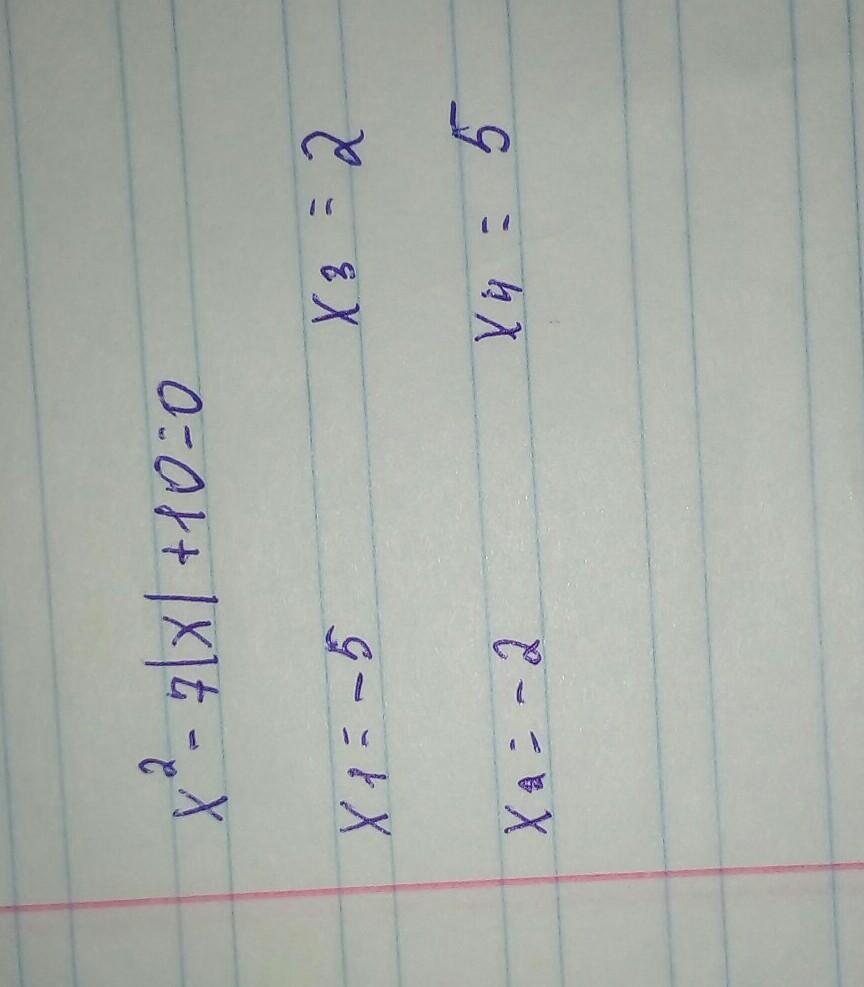 x² - 7|x| + 10 = 0
x1 = -5 x3 = 2
x2 = -2 x4 = 5